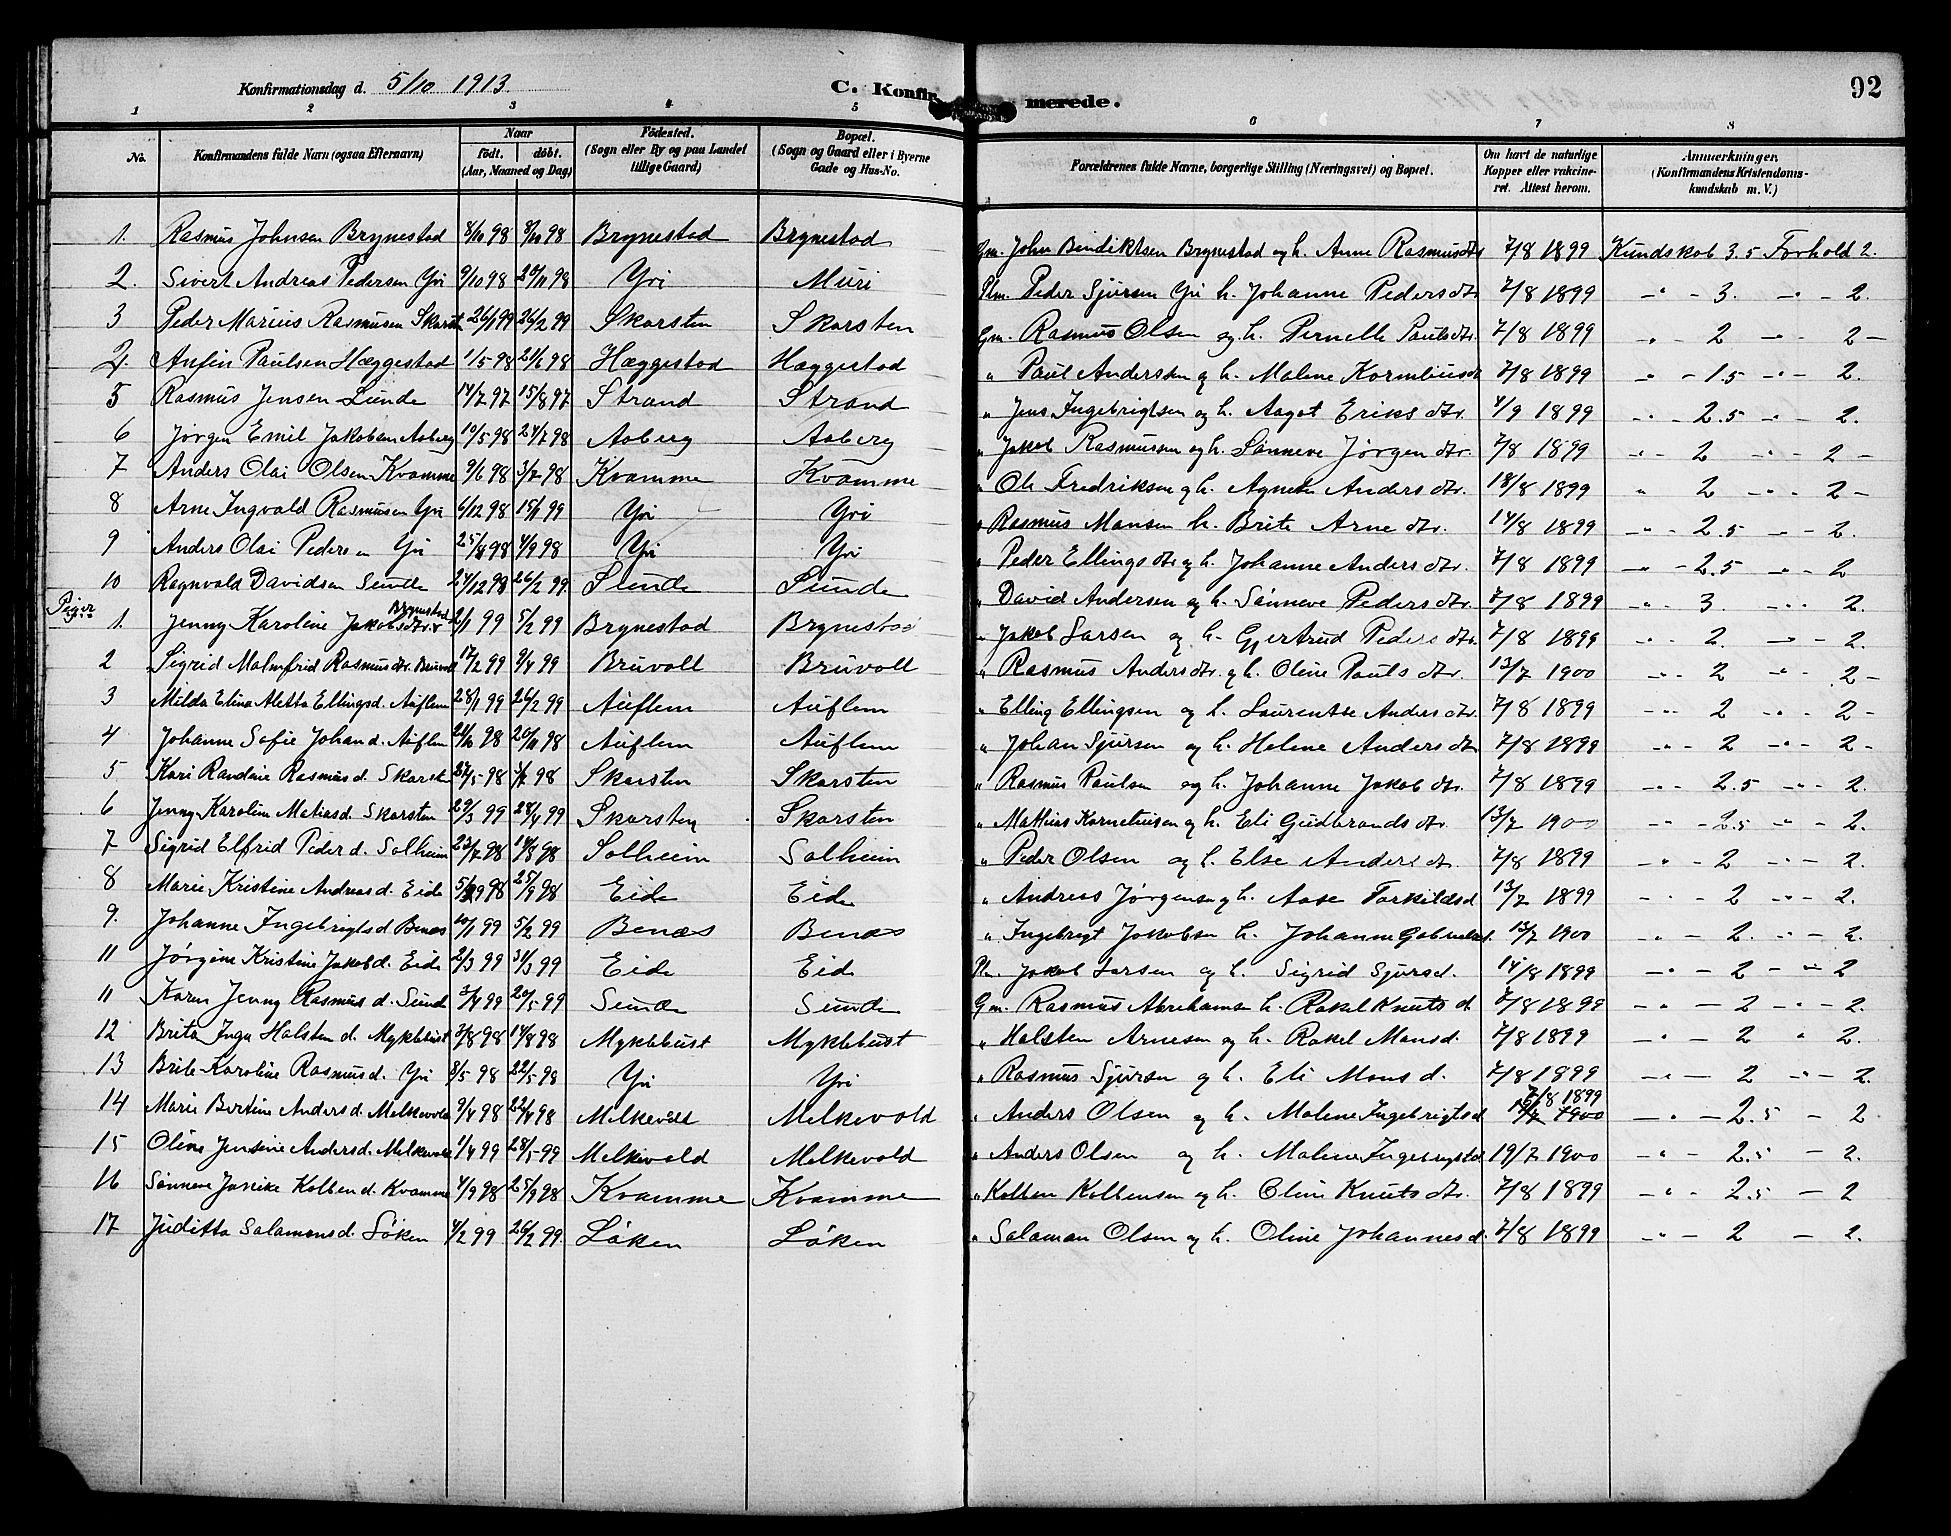 92
Konfirmationsdag d. 5/10 1913. C. Konfirmerede.
1 2 3 4 5 6 7 8
No. Konfirmandens fulde Navn (ogsaa Efternavn) Naar født. døbt. (Aar, Maaned og Dag) Fødested. (Sogn eller By og paa Landet tillige Gaard) Bopæl. (Sogn og Gaard eller i Byerne Gade og Hus-No. Forældrenes fulde Navne, borgerlige Stilling (Næringsvei) og Bopæl. Om havt de naturlige Kopper eller vakcineret. Attest herom. Anmerkninger. (Konfirmandens Kristendomskundskab m. V.)
1. Rasmus Johnsen Brynestad 8/10 98 8/10 98 Brynestad Brynestad Gm. John Bendiktsen Brynestad og h. Anne Rasmusdtr 7/8 1899 Kundskab 3.5 Forhold 2.
2. Sivert Andreas Pedersen Yri 9/10 98 20/11 98 Yri Muri Plm. Peder Sjursen Yri h. Johanne Pedersdtr 7/8 1899 - " - 3. - " - 2.
3 Peder Marius Rasmusen Skarsten 26/1 99 26/2 99 Skarsten Skarsten Gm. Rasmus Olsen og h. Pernelle Paulsdtr. 7/8 1899 - " - 2 - " - 2 -
4. Anfin Paulsen Hæggestad 1/5 98 21/6 98 Hæggestad Hæggestad " Paul Andersen og h. Malene 7/8 1899 - " - 1.5 - " - 2.
5 Rasmus Jensen Lunde 14/7 97 15/8 97 Strand Strand " Jens Ingebrigtsen og h. Aagot Eriksdtr. 4/9 1899 - " - 2.5 - " - 2.
6 Jørgen Emil Jakobsen Aaberg 10/5 98 24/7 98 Aaberg Aaberg " Jakob Rasmussen og h. Sønneve Jørgendtr. 7/8 1899 - " - 2 - " - 2 -
7 Anders Olai Olsen Kvamme 9/6 98 3/7 98 Kvamme Kvamme " Ole Fredriksen og h. Agnete Andersdtr. 18/8 1899 " 2 - " - 2 -
8 Arne Ingvald Rasmusen Yri 6/12 98 15/1 99 Yri Yri " Rasmus Monsen h. Brite Arnedtr. 14/8 1899 - " - 2.5 - " - 2.
9 Anders Olai Pedersen Yri 25/8 98 4/9 98 Yri Yri " Peder Ellingsdtr og h. Johanne Andersdtr. 7/8 1899 - " - 2.5 - " - 2
10 Ragnvald Davidsen Sunde 24/12 98 26/2 99. Sunde Sunde " David Andersen og h. Sønneve Pedersdtr. 7/8 1899 - " - 3. - " - 2.
Piger
1. Jenny Karoline Jakobsdtr. Brynestad 2/1 99 5/2 99 Brynestad Brynestad " Jakob Larsen og h. Gjertrud Pedersdtr. 7/8 1899 - " - 2. - " - 2.
2 Sigrid Malmfrid Rasmusdtr. Bruvoll 17/2 99 9/4 99 Bruvoll Bruvoll " Rasmus Andersdtr. og h. Oline Paulsdtr. 13/7 1900 - " - 2 - " - 2 -
3 Milda Elina Aletta Ellingsd. Auflem 28/1 99 26/2 99 Auflem Auflem " Elling Ellingsen og h. Laurentse Andersdtr. 7/8 1899 - " - 2 - " - 2 -
4 Johanne Sofie Johand. Auflem 98 20/11 98 Auflem Auflem " Johan Sjursen og h. Helene Andersdtr 7/8 1899 - " - 2 - " - 2 -
5 Kari Randine Rasmusd. Skarsten 98 98 Skarsten Skarsten " Rasmus Paulsen og h. Johanne Jakobdtr. 7/8 1899 - " - 2.5 - " - 2.
6 Jenny Karoline Matiasd. Skarsten 29/3 99 24/4 99 Skarsten Skarsten " Mathias Korneliusen og h. Eli Gudbrandsdtr. 13/7 1900 - " - 2.5 - " - 2.
7 Sigrid Elfrid Pederd. Solheim 23/7 98 14/8 98 Solheim Solheim " Peder Olsen og h. Else Andersdtr. 7/8 1899 - " - 2 - " - 2.
8 Marie Kristine Andreasd. Eide 98 25/9 98 Eide Eide " Andreas Jørgensen og h. Aase Torkildsd. 13/7 1899 - " - 2 - " - 2.
9. Johanne Ingebrigtsd. Benæs 10/1 99 5/2 99 Benæs Benæs " Ingebrigt Jakobsen h. Johanne Gabrielsd. 13/7 1900 - " - 2. - " - 2.
11 Jørgine Kristine Jakobd. Eide 2/3 99 31/3 99 Eide Eid Jakob Larsen og h. Sigrid Sjursd. 14/8 1899 - " - 2 - " - 2
11 Karen Jenny Rasmusd. Sunde 3/4 99 20/5 99 Sunde Sunde Gm. Rasmus Abrahams h. Rakel Knutsd. 7/8 1899 - " - 2 - " - 2.
12 Brita Inga Halstend. Myklebust 3/8 98 14/8 98 Myklebust Myklebust " Halsten Arnesen og h. Rakel Monsd. 7/8 1899 - " - 2 " 2.
13 Brite Karoline Rasmusd. Yri 8/5 98 22/5 98 Yri Yri " Rasmus Sjursen og h. Eli Monsd. 7/8 1899 - " - 2 - " - 2.
14 Marie Bertine Andersd. Melkevold 9/4 98 22/4 98 Melkevold Melkevold " Anders Olsen og h. Malene Ingebrigtsd 7/8 1899 - " - 2.5 - 2
15 Oline Jensine Andersd. Melkevold 1/4 99 28/5 99 Melkevold Melkevold " Anders Olsen og h. Malene Ingebrigtsd 19/7 1900 - " - 2.5 - 2.
16 Sønneve Janike Kolbend. Kvamme 4/9 98 25/9 98 Kvamme Kvamme " Kolben Kolbensen og h. Oline Knutsdtr. 7/8 1899 - " - 2.5 - 2
17 Juditta Salamonsd. Løken 4/2 99 26/2 99. Løken Løken " Salaman Olsen og h. Oline Johannesd. 7/8 1899 - " - 2 - 2.